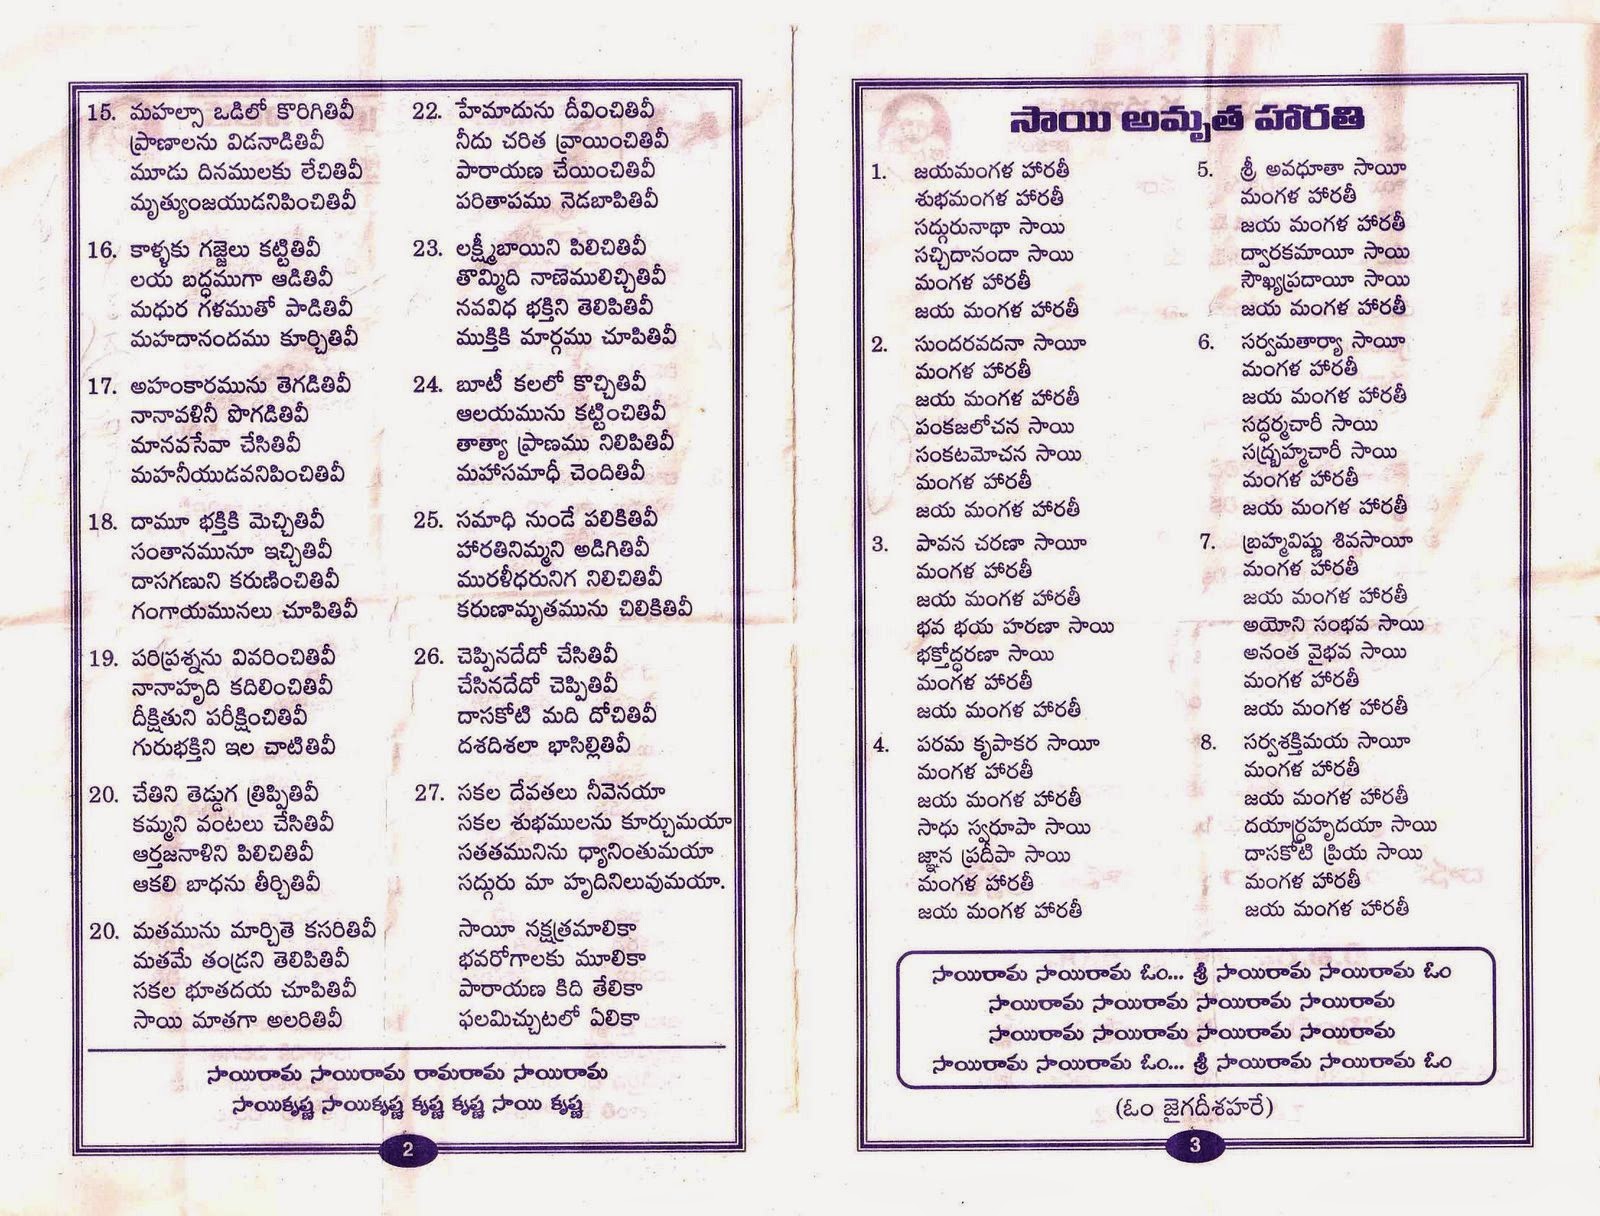 15. మహల్సా ఒడిలో కొరిగితివీ
ప్రాణాలను విడనాడితివీ
మూడు దినములకు లేచితివీ
మృత్యుంజయుడనిపించితివీ
16. కాళ్ళకు గజ్జెలు కట్టితివీ
లయ బద్ధముగా ఆడితివీ
మధుర గళముతో పాడితివీ
మహదానందము కూర్చితివీ
17. అహంకారమును తెగడితివీ
నానావళినీ పొగడితివీ
మానవసేవా చేసితివీ
మహనీయుడవనిపించితివీ
18. దామూ భక్తికి మెచ్చితివీ
సంతానమునూ ఇచ్చితివీ
దాసగణుని కరుణించితివీ
గంగాయమునలు చూపితివీ
19. పరిప్రశ్నను వివరించితివీ
నానాహృది కదిలించితివీ
దీక్షితుని పరీక్షించితివీ
గురుభక్తిని ఇల చాటితివీ
20. చేతిని తెడ్డుగ త్రిప్పితివీ
కమ్మని వంటలు చేసితివీ
ఆర్తజనాళిని పిలిచితివీ
ఆకలి బాధను తీర్చితివీ
20. మతమును మార్చితె కసరితివీ
మతమే తండ్రని తెలిపితివీ
సకల భూతదయ చూపితివీ
సాయి మాతగా అలరితివీ
22. హేమాదును దీవించితివీ
నీదు చరిత వ్రాయించితివీ
పారాయణ చేయించితివీ
పరితాపము నెడబాపితివీ
23. లక్ష్మీబాయిని పిలిచితివీ
తొమ్మిది నాణెములిచ్చితివీ
నవవిధ భక్తిని తెలిపితివీ
ముక్తికి మార్గము చూపితివీ
24. బూటీ కలలో కొచ్చితివీ
ఆలయమును కట్టించితివీ
తాత్యా ప్రాణము నిలిపితివీ
మహాసమాధీ చెందితివీ
25. సమాధి నుండే పలికితివీ
హారతినిమ్మని అడిగితివీ
మురళీధరునిగ నిలిచితివీ
కరుణామృతమును చిలికితివీ
26. చెప్పినదేదో చేసితివీ
చేసినదేదో చెప్పితివీ
దాసకోటి మది దోచితివీ
దశదిశలా భాసిల్లితివీ
27. సకల దేవతలు నీవెనయా
సకల శుభములను కూర్చుమయా
సతతమునిను ధ్యానింతుమయా
సద్గురు మా హృదినిలువుమయా.
సాయీ నక్షత్రమాలికా
భవరోగాలకు మూలికా
పారాయణ కిది తేలికా
ఫలమిచ్చుటలో ఏలికా
సాయిరామ సాయిరామ రామరామ సాయిరామ
సాయికృష్ణ సాయికృష్ణ కృష్ణ కృష్ణ సాయి కృష్ణ
2
సాయి అమృత హారతి
1. జయమంగళ హారతీ
శుభమంగళ హారతీ
సద్గురునాథా సాయి
సచ్చిదానందా సాయి
మంగళ హారతీ
జయ మంగళ హారతీ
2. సుందరవదనా సాయీ
మంగళ హారతీ
జయ మంగళ హారతీ
పంకజలోచన సాయి
సంకటమోచన సాయి
మంగళ హారతీ
జయ మంగళ హారతీ
3. పావన చరణా సాయీ
మంగళ హారతీ
జయ మంగళ హారతీ
భవ భయ హరణా సాయి
భక్తోద్ధరణా సాయి
మంగళ హారతీ
జయ మంగళ హారతీ
4. పరమ కృపాకర సాయీ
మంగళ హారతీ
జయ మంగళ హారతీ
సాధు స్వరూపా సాయి
జ్ఞాన ప్రదీపా సాయి
మంగళ హారతీ
జయ మంగళ హారతీ
5. శ్రీ అవధూతా సాయీ
మంగళ హారతీ
జయ మంగళ హారతీ
ద్వారకమాయీ సాయి
సౌఖ్యప్రదాయీ సాయి
జయ మంగళ హారతీ
6. సర్వమతార్యా సాయీ
మంగళ హారతీ
జయ మంగళ హారతీ
సద్ధర్మచారీ సాయి
సద్బ్రహ్మచారీ సాయి
మంగళ హారతీ
జయ మంగళ హారతీ
7. బ్రహ్మవిష్ణు శివసాయీ
మంగళ హారతీ
జయ మంగళ హారతీ
అయోని సంభవ సాయి
అనంత వైభవ సాయి
మంగళ హారతీ
జయ మంగళ హారతీ
8. సర్వశక్తిమయ సాయీ
మంగళ హారతీ
జయ మంగళ హారతీ
దయార్ద్రహృదయా సాయి
దాసకోటి ప్రియ సాయి
మంగళ హారతీ
జయ మంగళ హారతీ
సాయిరామ సాయిరామ ఓం... శ్రీ సాయిరామ సాయిరామ ఓం
సాయిరామ సాయిరామ సాయిరామ సాయిరామ
సాయిరామ సాయిరామ సాయిరామ సాయిరామ
సాయిరామ సాయిరామ ఓం... శ్రీ సాయిరామ సాయిరామ ఓం
(ఓం జైగదీశహరే)
3